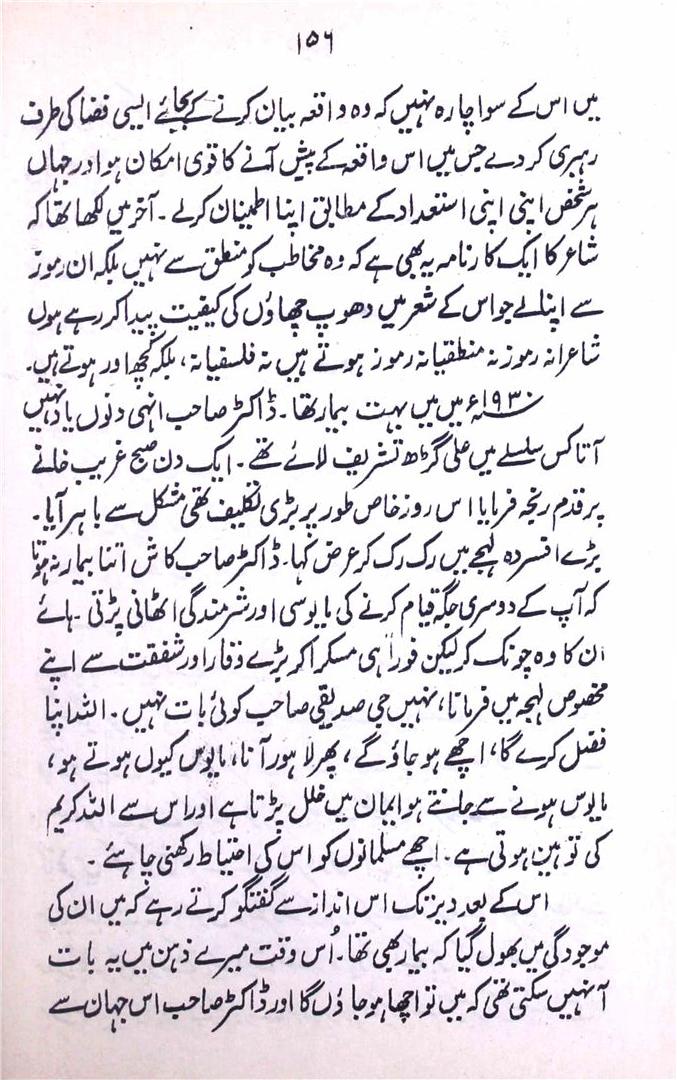 ۱۵۶
میں اس کے سوا چارہ نہیں کہ وہ واقعہ بیان کرنے کے بجائے ایسی فضا کی طرف
رہبری کر دے جس میں اس واقعہ کے پیش آنے کا قوی امکان ہو اور جہاں
ہر شخص اپنی اپنی استعداد کے مطابق اپنا اطمینان کر لے ۔ آخر میں لکھا تھا کہ
شاعر کا ایک کارنامہ یہ بھی ہے کہ وہ مخاطب کو منطق سے نہیں بلکہ ان رموز
سے اپنا لے جو اس کے شعر میں دھوپ چھاؤں کی کیفیت پیدا کر رہے ہوں
شاعرانہ رموز نہ منطقیانہ رموز ہوتے ہیں نہ فلسفیانہ ، بلکہ کچھ اور ہوتے ہیں۔
۱۹۳۰ء میں میں بہت بیمار تھا ۔ ڈاکٹر صاحب انہی دنوں یاد نہیں
آتا کس سلسلے میں علی گڑھ تشریف لائے تھے ۔ ایک دن صبح غریب خانے
پر قدم رنجہ فرمایا اس روز خاص طور پر بڑی تکلیف تھی مشکل سے باہر آیا ۔
بڑے افسردہ لہجے میں رک رک کر عرض کیا ۔ ڈاکٹر صاحب کاش اتنا بیمار نہ ہوتا
کہ آپ کے دوسری جگہ قیام کرنے کی مایوسی اور شرمندگی اٹھانی پڑتی ۔ ہائے
ان کا وہ چونک کر لیکن فوراً ہی مسکرا کر بڑے وقار اور شفقت سے اپنے
مخصوص لہجہ میں فرمانا، نہیں جی صدیقی صاحب کوئی بات نہیں ۔ اللہ اپنا
فضل کرے گا، اچھے ہو جاؤ گے ، پھر لاہور آنا، مایوس کیوں ہوتے ہو ،
مایوس ہونے سے جانتے ہو ایمان میں خلل پڑتا ہے اور اس سے اللہ کریم
کی توہین ہوتی ہے ۔ اچھے مسلمانوں کو اس کی احتیاط رکھنی چاہئے ۔
اس کے بعد دیر تک اس انداز سے گفتگو کرتے رہے کہ میں ان کی
موجودگی میں بھول گیا کہ بیمار بھی تھا ۔ اُس وقت میرے ذہن میں یہ بات
آ نہیں سکتی تھی کہ میں تو اچھا ہو جاؤں گا اور ڈاکٹر صاحب اس جہان سے